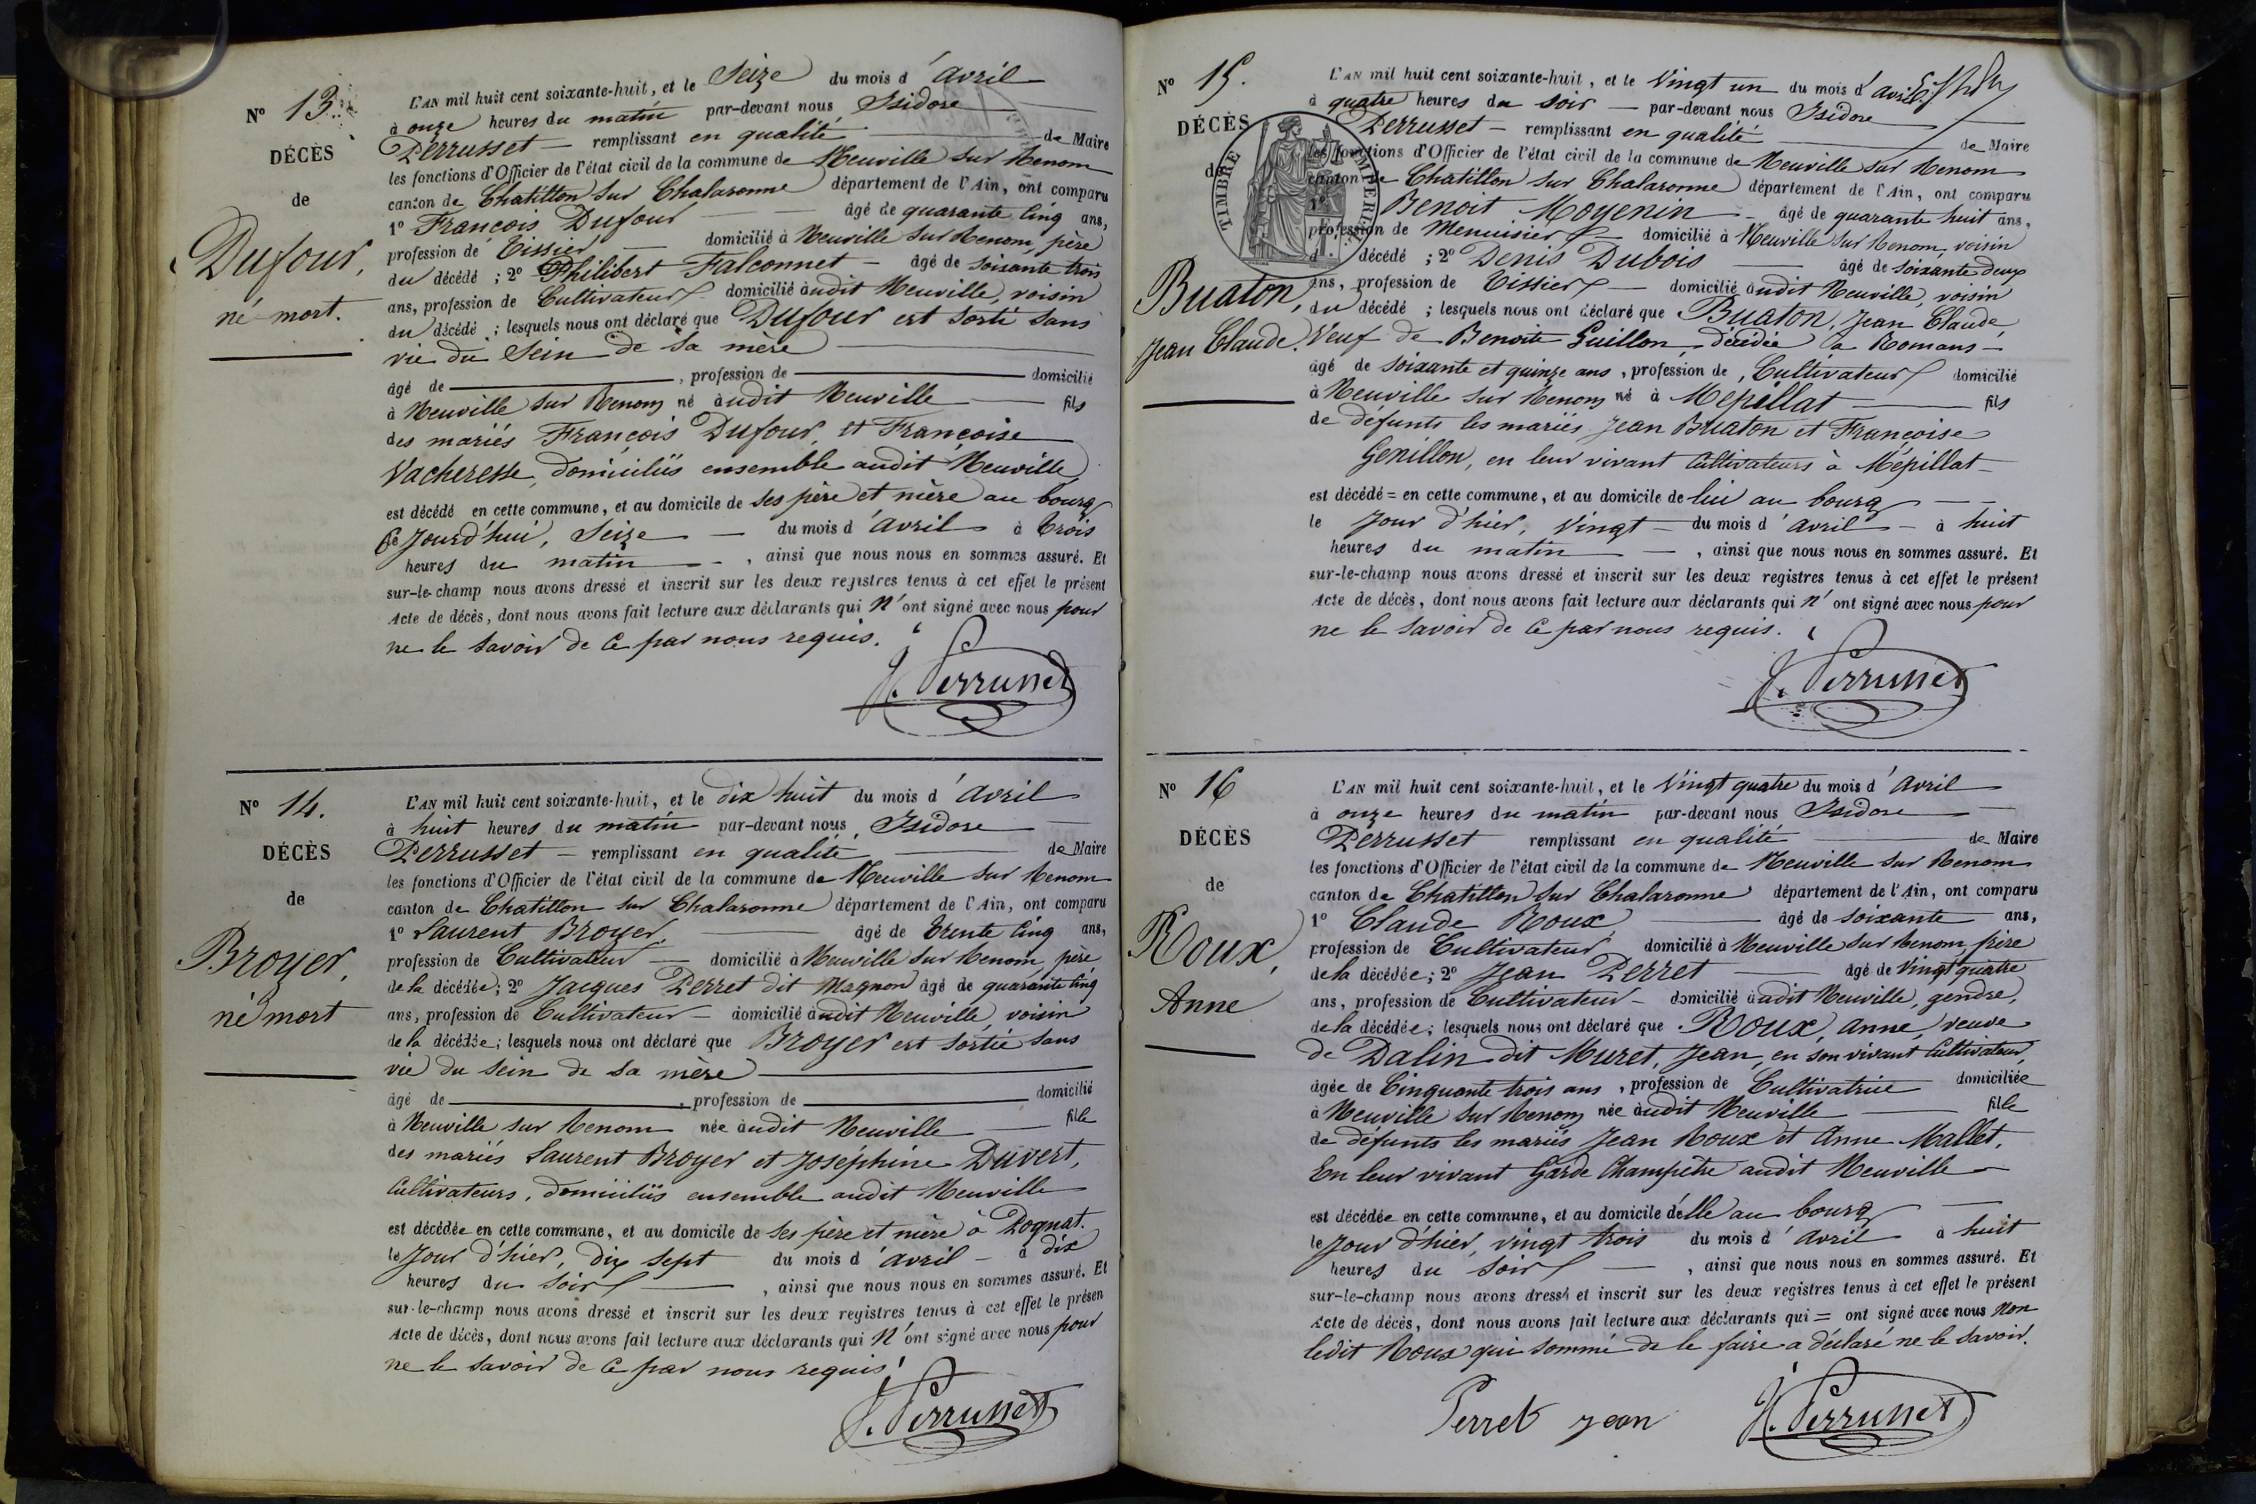 N° 13.
DÉCÈS
de
Dufour,
né mort.
L'AN mil huit cent soixante-huit, et le Seize du mois d'avril
à onze heures du matin par-devant nous Isidore
Perrusset remplissant en qualité de Maire
les fonctions d'Officier de l'état civil de la commune de Neuville sur Renom
canton de Chatillon sur Chalaronne département de l'Ain, ont comparu
1° François Dufour âgé de quarante cinq ans,
profession de Tissier domicilié à Neuville sur Renom, père
du décédé ; 2° Philibert Falconnet âgé de soixante trois
ans, profession de Cultivateur domicilié audit Neuville, voisin
du décédé ; lesquels nous ont déclaré que Dufour est sorti sans
vie du sein de sa mère
âgé de , profession de domicilié
à Neuville sur Renom né audit Neuville fils
des mariés François Dufour, et Françoise
Vacheresse, domiciliés ensemble audit Neuville
est décédé en cette commune, et au domicile de ses père et mère au bourg
ce Jourd'hui, Seize du mois d'avril à trois
heures du matin , ainsi que nous nous en sommes assuré. Et
sur-le-champ nous avons dressé et inscrit sur les deux registres tenus à cet effet le présent
Acte de décès, dont nous avons fait lecture aux déclarants qui n'ont signé avec nous pour
ne le savoir de ce par nous requis.
J. Perrusset
N° 14.
DÉCÈS
de
Broyer,
né mort
L'AN mil huit cent soixante-huit, et le dix huit du mois d'avril
à huit heures du matin par-devant nous, Isidore
Perrusset remplissant en qualité de Maire
les fonctions d'Officier de l'état civil de la commune de Neuville sur Renom
canton de Chatillon sur Chalaronne département de l'Ain, ont comparu
1° Laurent Broyer, âgé de trente cinq ans,
profession de Cultivateur domicilié à Neuville sur Renom, père
de la décédée ; 2° Jacques Perret dit Magnon âgé de quarante cinq
ans, profession de Cultivateur domicilié audit Neuville, voisin
de la décédée ; lesquels nous ont déclaré que Broyer est sortie sans
vie du sein de sa mère
âgé de , profession de domicilié
à Neuville sur Renom née audit Neuville fille
des mariés Laurent Broyer et Joséphine Duvert,
Cultivateurs, domiciliés ensemble audit Neuville
est décédée en cette commune, et au domicile de ses père et mère à Pognat.
le Jour d'hier, dix sept du mois d'avril à dix
heures du soir , ainsi que nous nous en sommes assuré. Et
sur-le-champ nous avons dressé et inscrit sur les deux registres tenus à cet effet le présen
Acte de décès, dont nous avons fait lecture aux déclarants qui n'ont signé avec nous pour
ne le savoir de ce par nous requis
J. Perrusset
N° 15.
DÉCÈS
de
TIMBRE IMPERIAL
Buaton,
Jean Claude.
L'AN mil huit cent soixante-huit, et le Vingt un du mois d'avril
à quatre heures du soir par-devant nous Isidore
Perrusset remplissant en qualité de Maire
les fonctions d'Officier de l'état civil de la commune de Neuville sur Renom
canton de Chatillon sur Chalaronne département de l'Ain, ont comparu
1° Benoit Moyenin âgé de quarante huit ans,
profession de Menuisier domicilié à Neuville sur Renom, voisin
d. décédé ; 2° Denis Dubois âgé de soixante deux
ans, profession de Tissier domicilié audit Neuville, voisin
du décédé ; lesquels nous ont déclaré que Buaton, Jean Claude,
Veuf de Benoite Guillon, décédée à Romans
âgé de soixante et quinze ans, profession de, Cultivateur domicilié
à Neuville sur Renom né à Mépillat fils
de défunts les mariés Jean Buaton et Françoise
Genillon, en leur vivant Cultivateurs à Mépillat
est décédé = en cette commune, et au domicile de lui au bourg
le Jour d'hier, vingt du mois d'avril à huit
heures du matin , ainsi que nous nous en sommes assuré. Et
sur-le-champ nous avons dressé et inscrit sur les deux registres tenus à cet effet le présent
Acte de décès, dont nous avons fait lecture aux déclarants qui n'ont signé avec nous pour
ne le savoir de ce par nous requis.
J. Perrusset
N° 16
DÉCÈS
de
Roux,
Anne
L'AN mil huit cent soixante-huit, et le Vingt quatre du mois d'avril
à onze heures du matin par-devant nous Isidore
Perrusset remplissant en qualité de Maire
les fonctions d'Officier de l'état civil de la commune de Neuville sur Renom
canton de Chatillon sur Chalaronne département de l'Ain, ont comparu
1° Claude Roux âgé de soixante ans,
profession de Cultivateur domicilié à Neuville sur Renom, frère
de la décédée ; 2° Jean Perret âgé de vingt quatre
ans, profession de Cultivateur domicilié audit Neuville, gendre,
de la décédée ; lesquels nous ont déclaré que Roux, Anne, veuve
de Dalin dit Muret, Jean, en son vivant Cultivateur,
âgée de Cinquante trois ans, profession de Cultivatrice domiciliée
à Neuville sur Renom née audit Neuville fille
de défunts les mariés Jean Roux et Anne Mallet,
En leur vivant Garde Champêtre audit Neuville
est décédée en cette commune, et au domicile d'elle au bourg
le Jour d'hier, vingt trois du mois d'avril à huit
heures du soir , ainsi que nous nous en sommes assuré. Et
sur-le-champ nous avons dressé et inscrit sur les deux registres tenus à cet effet le présent
Acte de décès, dont nous avons fait lecture aux déclarants qui = ont signé avec nous Non
ledit Roux qui sommé de le faire a déclaré ne le savoir.
Perret Jean J. Perrusset